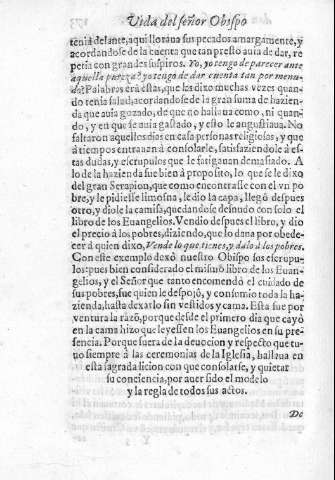 Vida del señor Obispo
tenia delante, aqui lloraua sus pecados amargamente, y
acordandose de la cuenta que tan presto auia de dar, re
petia con grandes suspiros. Yo, yo tengo de parecer ante
aquella pureza? yo tengo de dar cuenta tan por menu-
do? Palabras erã estas, que las dixo muchas vezes quan-
do tenia salud, acordandose de la gran suma de hazien-
da que auia gozado, de que no hallaua como, ni quan-
do, y en que se auia gastado, y esto le angustiaua. No
faltaron aquellos dias en casa personas religiosas, y que
a tiempos entrauan à consolarle, satisfaziendole à es-
tas dudas, y escrupulos que le fatigauan demasiado. A
lo de la hazienda fue bien à proposito, lo que se le dixo
del gran Serapion, que como encontrasse con el vn po
bre, y le pidiesse limosna, le dio la capa, llegò despues
otro, y diole la camisa, quedandose desnudo con solo el
libro de los Euangelios. Vendio despues el libro, y dio
el precio à los pobres, diziendo, que lo daua por obede-
cer à quien dixo, Vende lo que tienes, y dalo à los pobres.
Con este exemplo dexò nuestro Obispo los escrupu-
los: pues bien considerado el mismo libro de los Euan-
gelios, y el Señor que tanto encomendò el cuidado de
sus pobres, fue quien le despojò, y consumio toda la ha-
zienda, hasta dexarlo sin vestidos y cama. Esta fue por
ventura la razõ, porque desde el primero dia que cayò
en la cama hizo que leyessen los Euangelios en su pre-
sencia. Porque fuera de la deuocion y respecto que tu-
uo siempre à las ceremonias de la Iglesia, hallaua en
esta sagrada licion con que consolarse, y quietar
su conciencia, por auer sido el modelo
y la regla de todos sus actos.
De